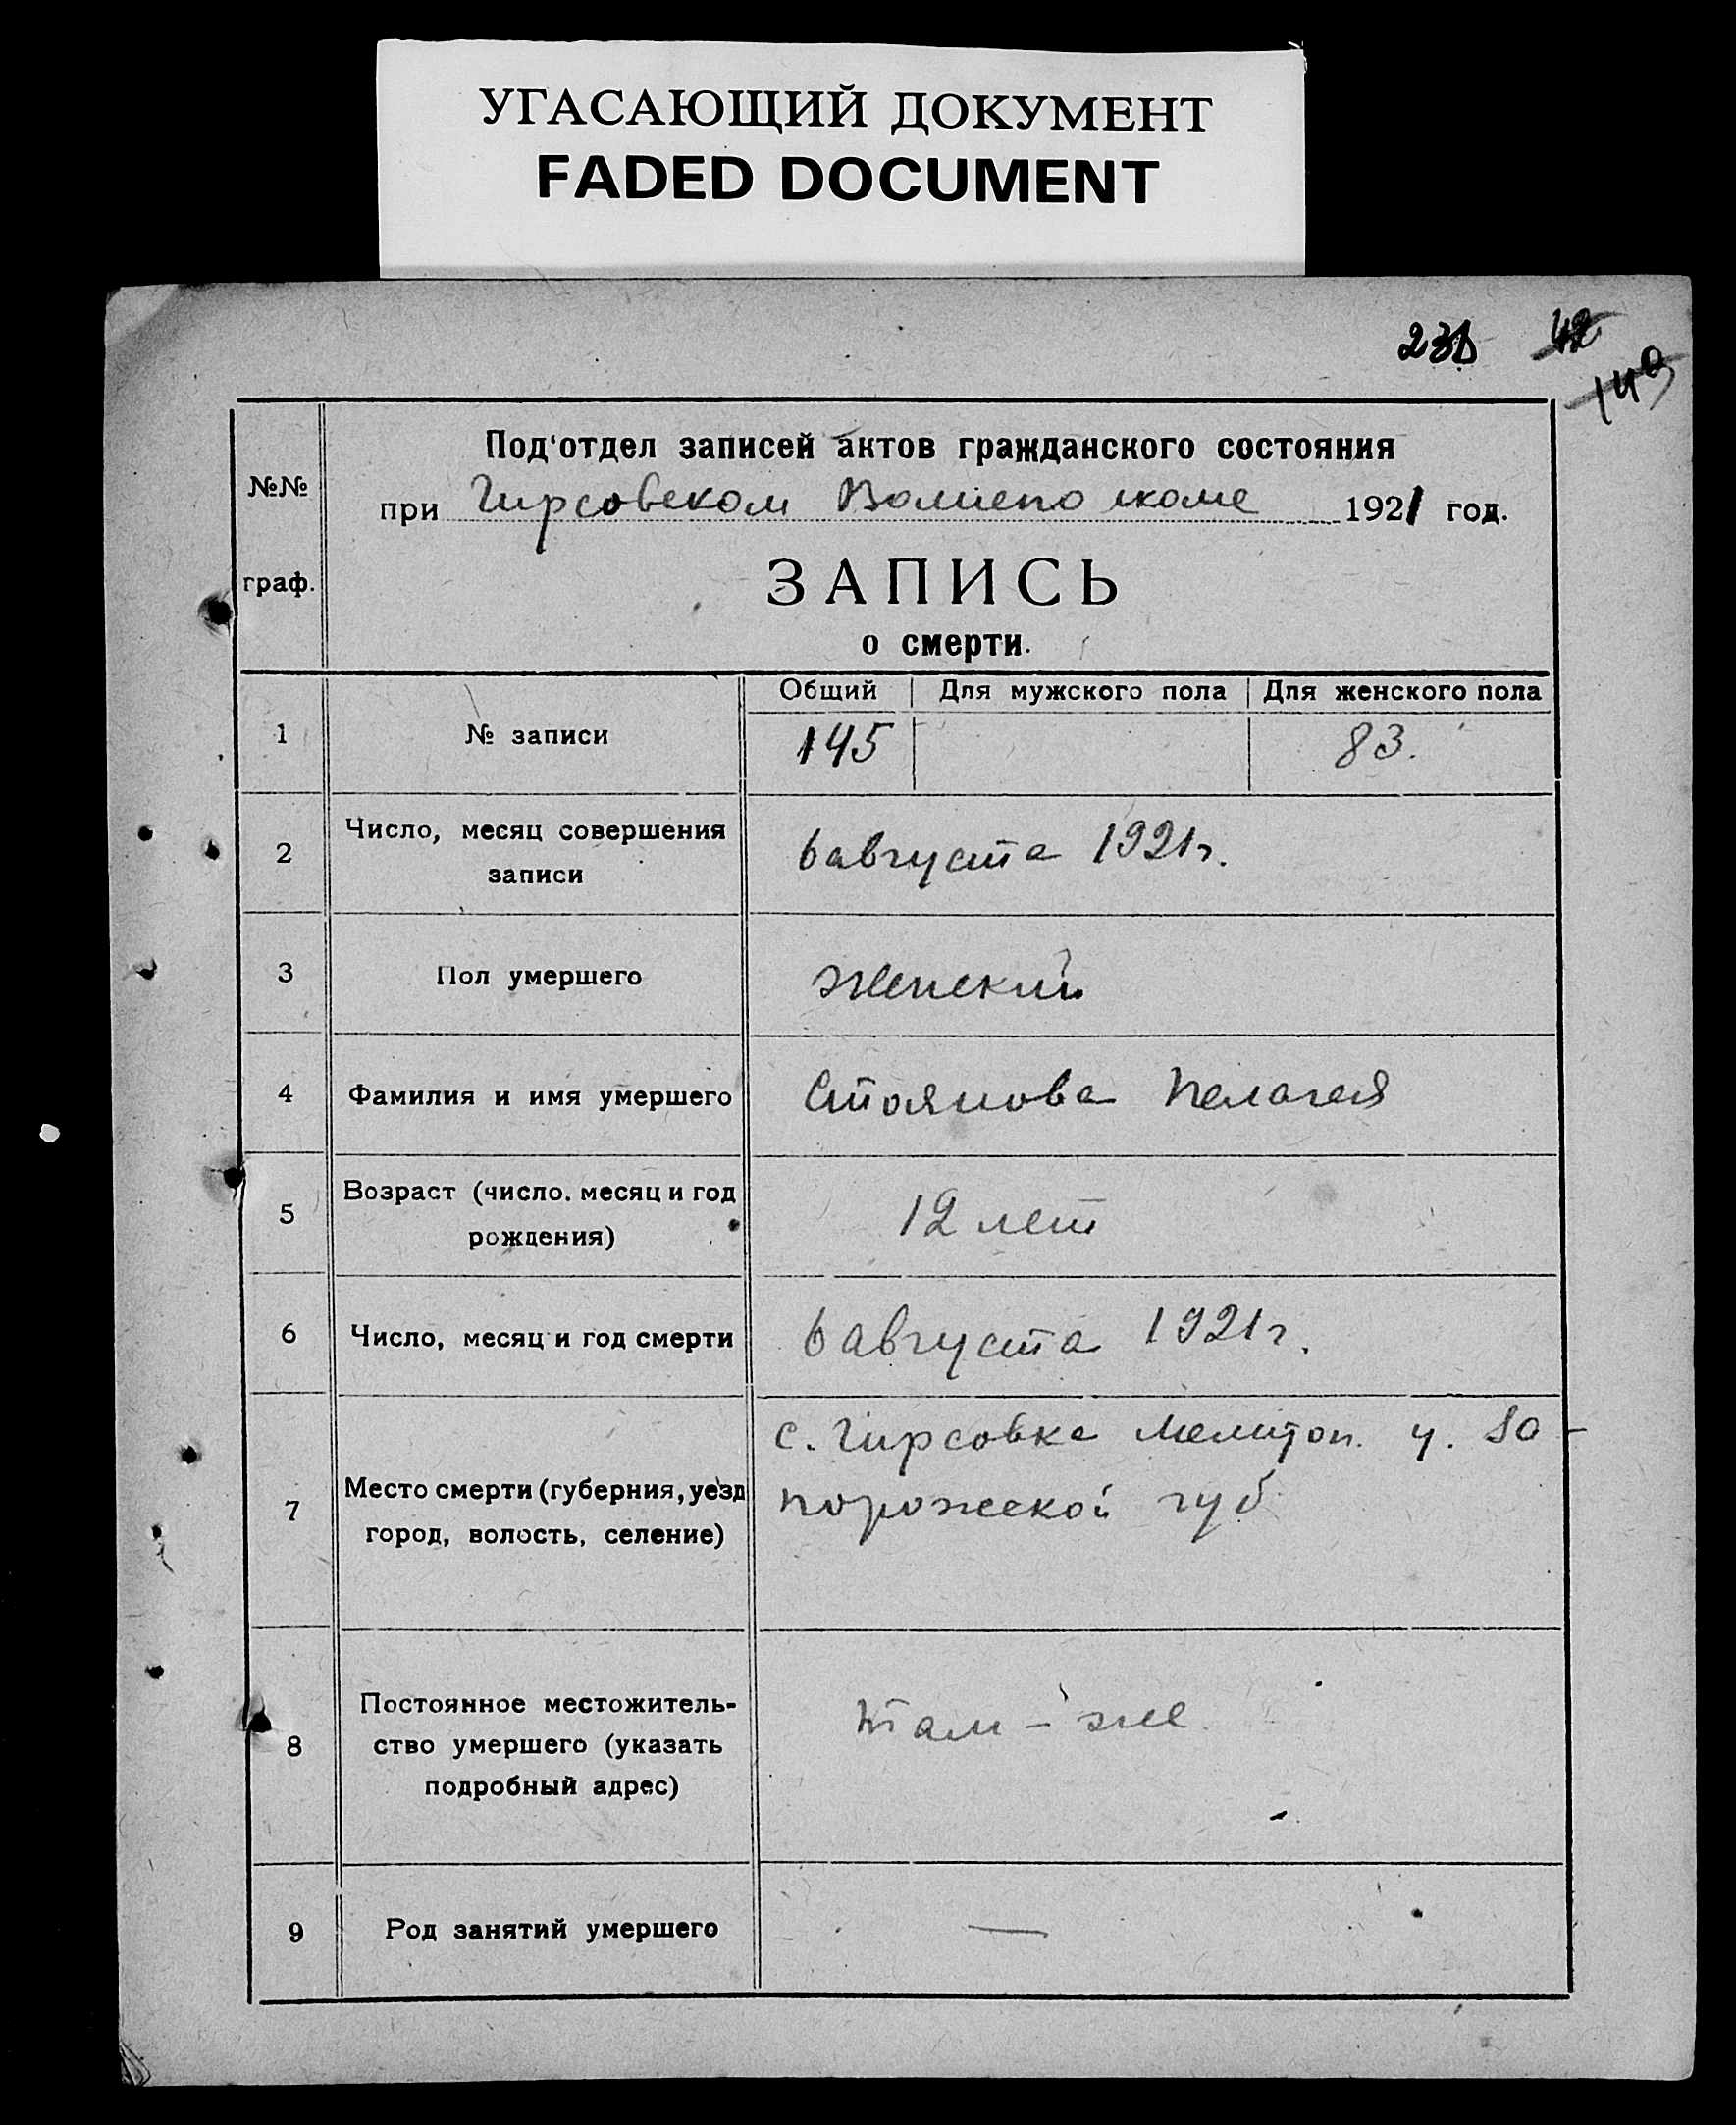 УГАСАЮЩИЙ ДОКУМЕНТ
FADED DOCUMENT
42
149
№№
граф.
Под'отдел записей актов гражданского состояния
при Гирсовском Волисполкоме 1921 год.
ЗАПИСЬ
о смерти.
Общий Для мужского пола Для женского пола
1 № записи 145 83.
2 Число, месяц совершения
записи
6 августа 1921 г.
3 Пол умершего Женский
4 Фамилия и имя умершего Стоянова Пелагея
5 Возраст (число. месяц и год
рождения)
12 лет
6 Число, месяц и год смерти 6 августа 1921 г.
7 Место смерти (губерния, уезд
город, волость, селение)
с. Гирсовка Мелитоп. у. За-
порожской губ
8 Постоянное местожитель-
ство умершего (указать
подробный адрес)
Там - же
9 Род занятий умершего —